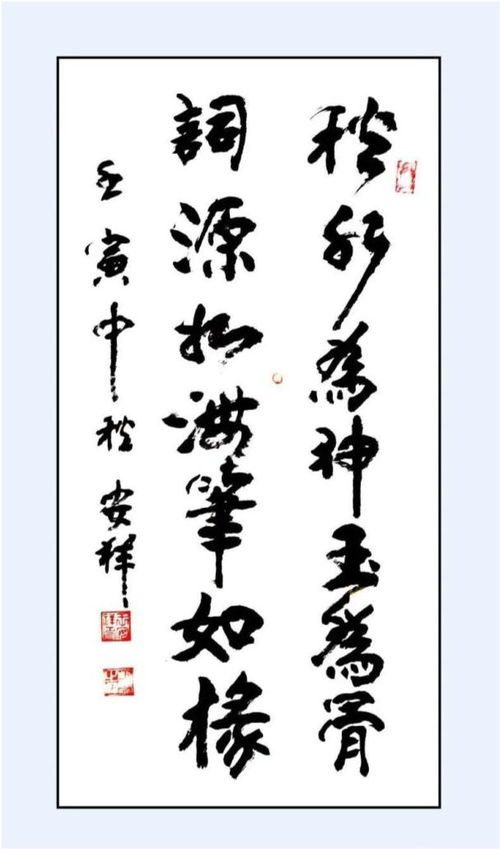 秋水為神玉為骨
詞源如海筆如椽
壬寅中秋 安祥